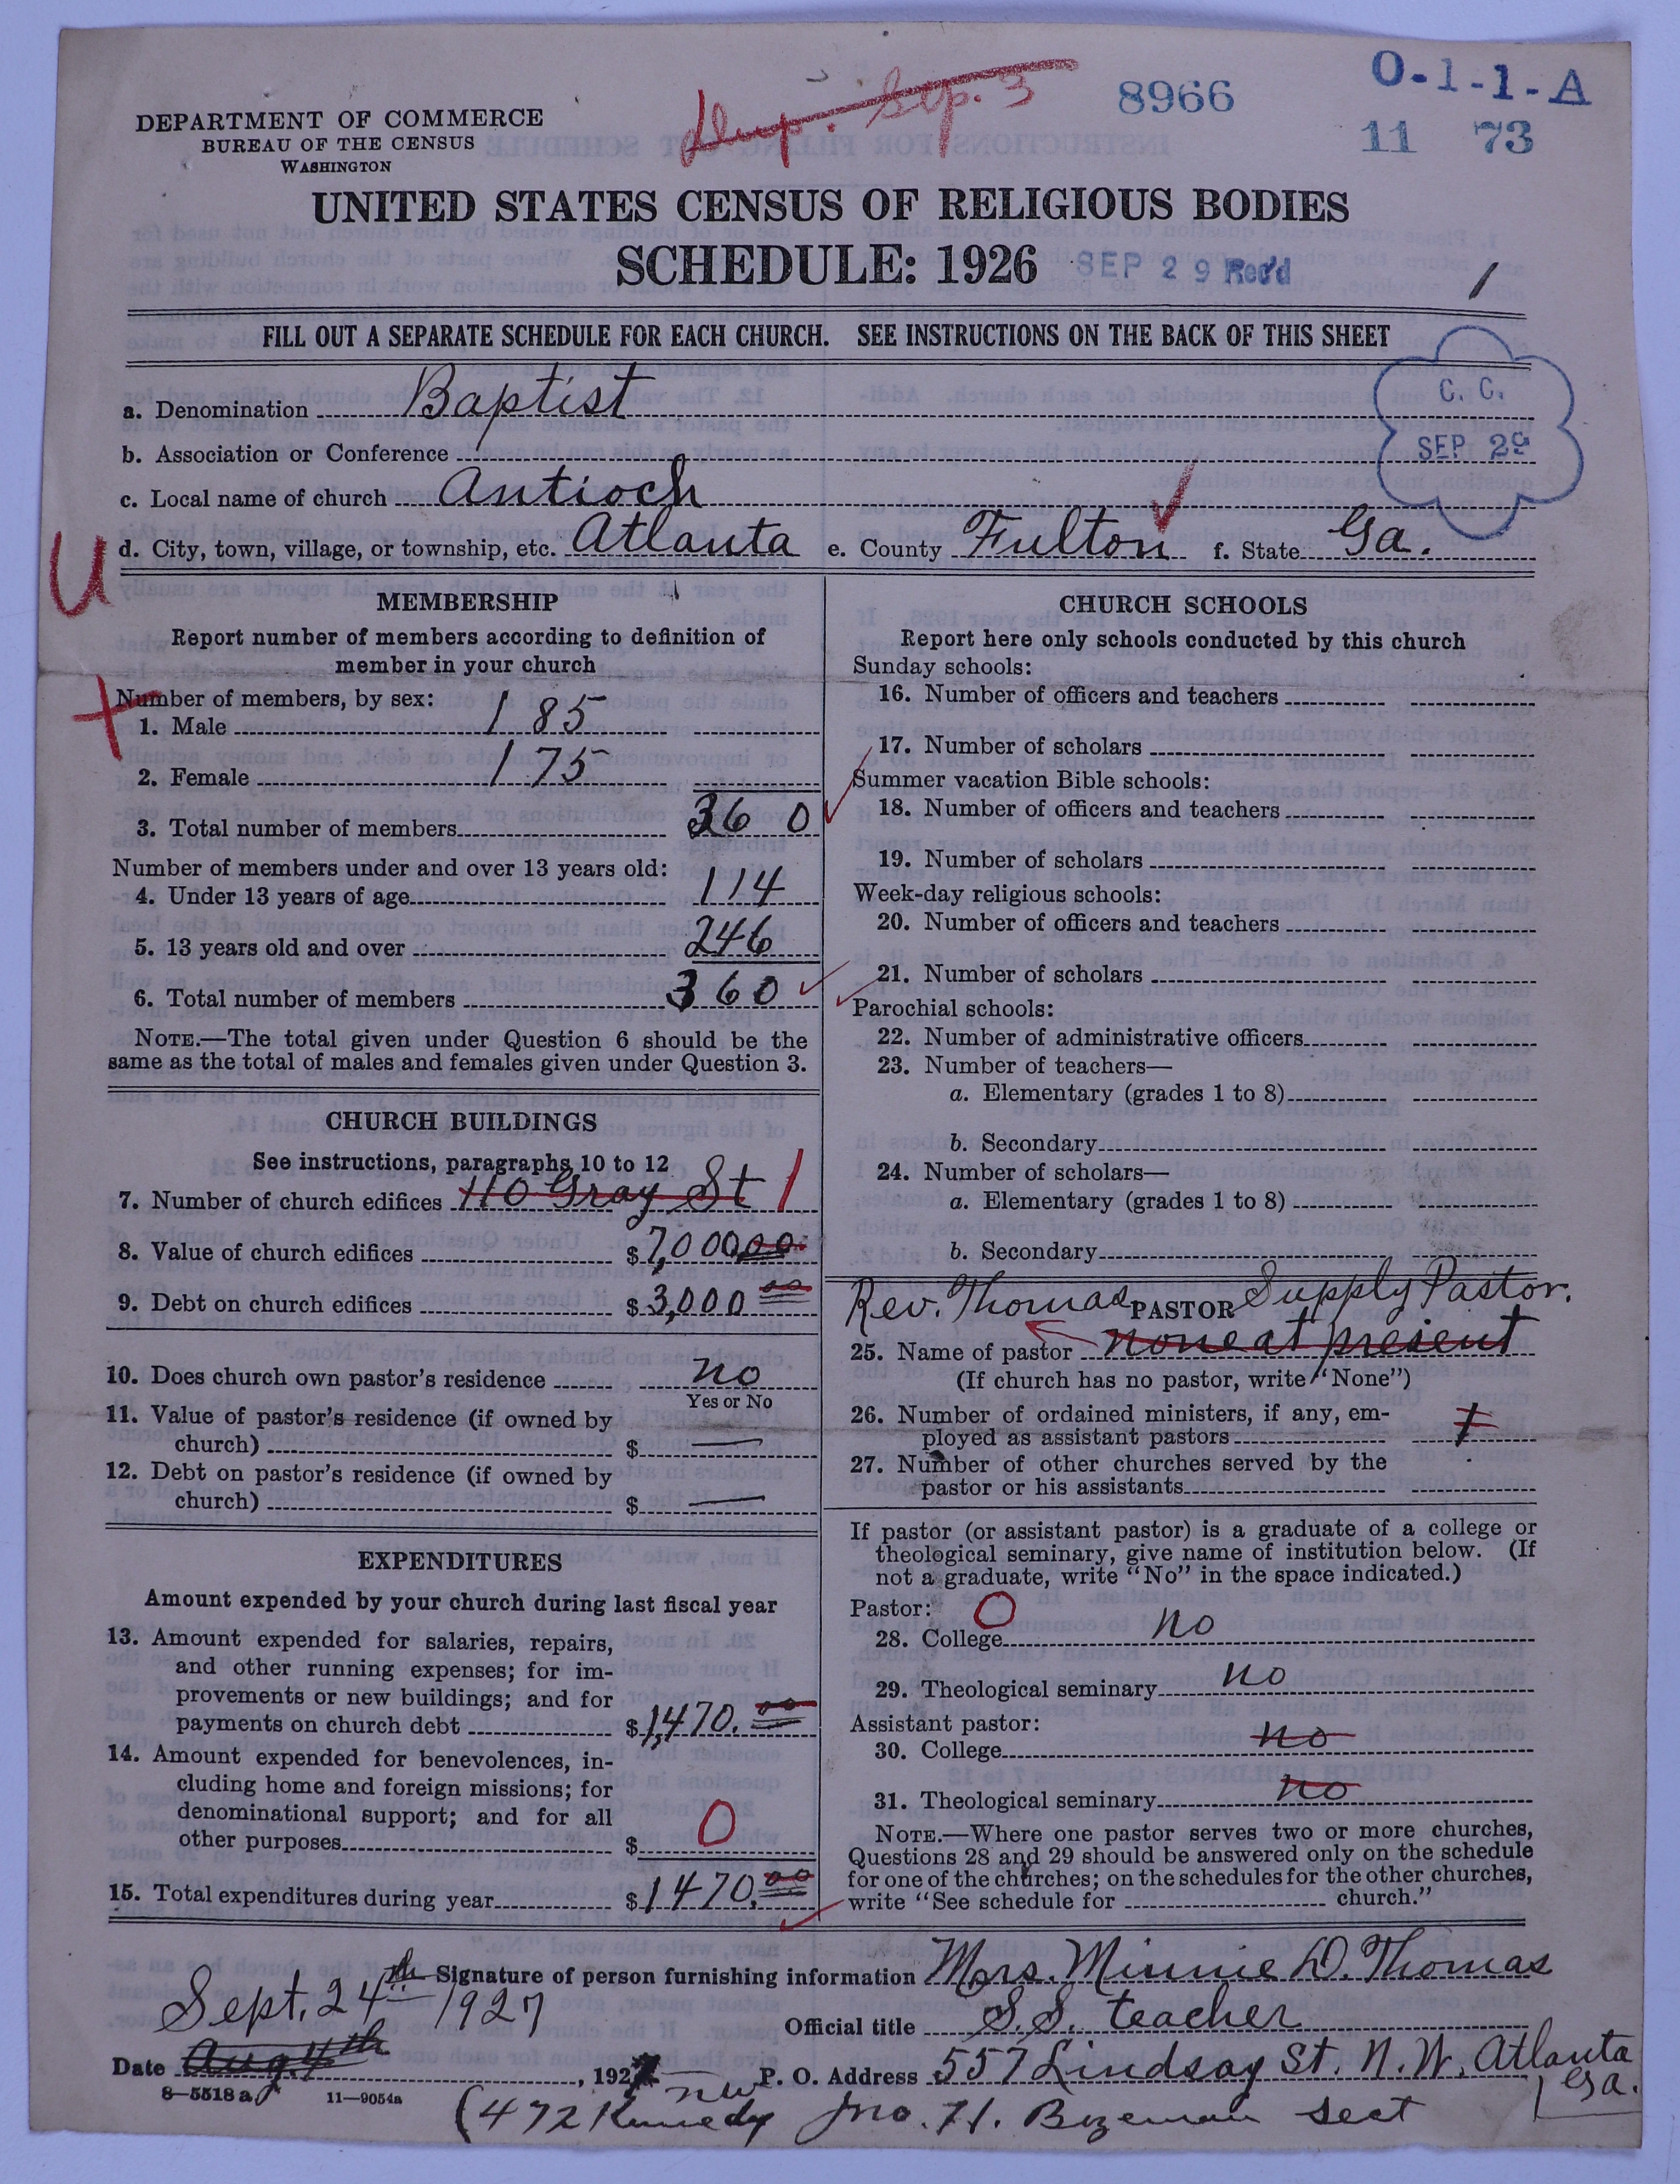 Sep. 3
8966
0-1-1-A
11 73
DEPARTMENT OF COMMERCE
BUREAU OF THE CENSUS
WASHINGTON
UNITED STATES CENSUS OF RELIGIOUS BODIES
SCHEDULE: 1926
SEP 29 Rec'd
1
FILL OUT A SEPARATE SCHEDULE FOR EACH CHURCH. SEE INSTRUCTIONS ON THE BACK OF THIS SHEET
C. C.
SEP 29
a. Denomination Baptist
b. Association or Conference
c. Local name of church Antioch
U
d. City, town, village, or township, etc. Atlanta e. County Fulton f. State Ga.
MEMBERSHIP
Report number of members according to definition of
member in your church
Number of members, by sex:
1. Male 185
2. Female 175
3. Total number of members 360
Number of members under and over 13 years old:
4. Under 13 years of age 114
5. 13 years old and over 246
6. Total number of members 360
NOTE.—The total given under Question 6 should be the
same as the total of males and females given under Question 3.
CHURCH BUILDINGS
See instructions, paragraphs 10 to 12
7. Number of church edifices 110 Gray St 1
8. Value of church edifices $7,000.00
9. Debt on church edifices $3,000 00
10. Does church own pastor's residence no
Yes or No
11. Value of pastor's residence (if owned by
church) $ —
12. Debt on pastor's residence (if owned by
church) $ —
EXPENDITURES
Amount expended by your church during last fiscal year
13. Amount expended for salaries, repairs,
and other running expenses; for im-
provements or new buildings; and for
payments on church debt $1,470.00
14. Amount expended for benevolences, in-
cluding home and foreign missions; for
denominational support; and for all
other purposes $ 0
15. Total expenditures during year $1470.00
CHURCH SCHOOLS
Report here only schools conducted by this church
Sunday schools:
16. Number of officers and teachers
17. Number of scholars
Summer vacation Bible schools:
18. Number of officers and teachers
19. Number of scholars
Week-day religious schools:
20. Number of officers and teachers
21. Number of scholars
Parochial schools:
22. Number of administrative officers
23. Number of teachers—
a. Elementary (grades 1 to 8)
b. Secondary
24. Number of scholars—
a. Elementary (grades 1 to 8)
b. Secondary
Rev. Thomas PASTOR Supply Pastor.
25. Name of pastor none at present
(If church has no pastor, write "None")
26. Number of ordained ministers, if any, em-
ployed as assistant pastors 1
27. Number of other churches served by the
pastor or his assistants
If pastor (or assistant pastor) is a graduate of a college or
theological seminary, give name of institution below. (If
not a graduate, write "No" in the space indicated.)
Pastor: 0
28. College no
29. Theological seminary no
Assistant pastor:
30. College no
31. Theological seminary no
NOTE.—Where one pastor serves two or more churches,
Questions 28 and 29 should be answered only on the schedule
for one of the churches; on the schedules for the other churches,
write "See schedule for church."
Signature of person furnishing information Mrs. Minnie D. Thomas
Sept. 24th 1927
Official title S.S. teacher
Date Aug 4th, 1927 P. O. Address 557 Lindsay St. N.W. Atlanta
Ga.
8—5518a 11—9054a
(472 Kennedy Jno. H. Bozeman sect